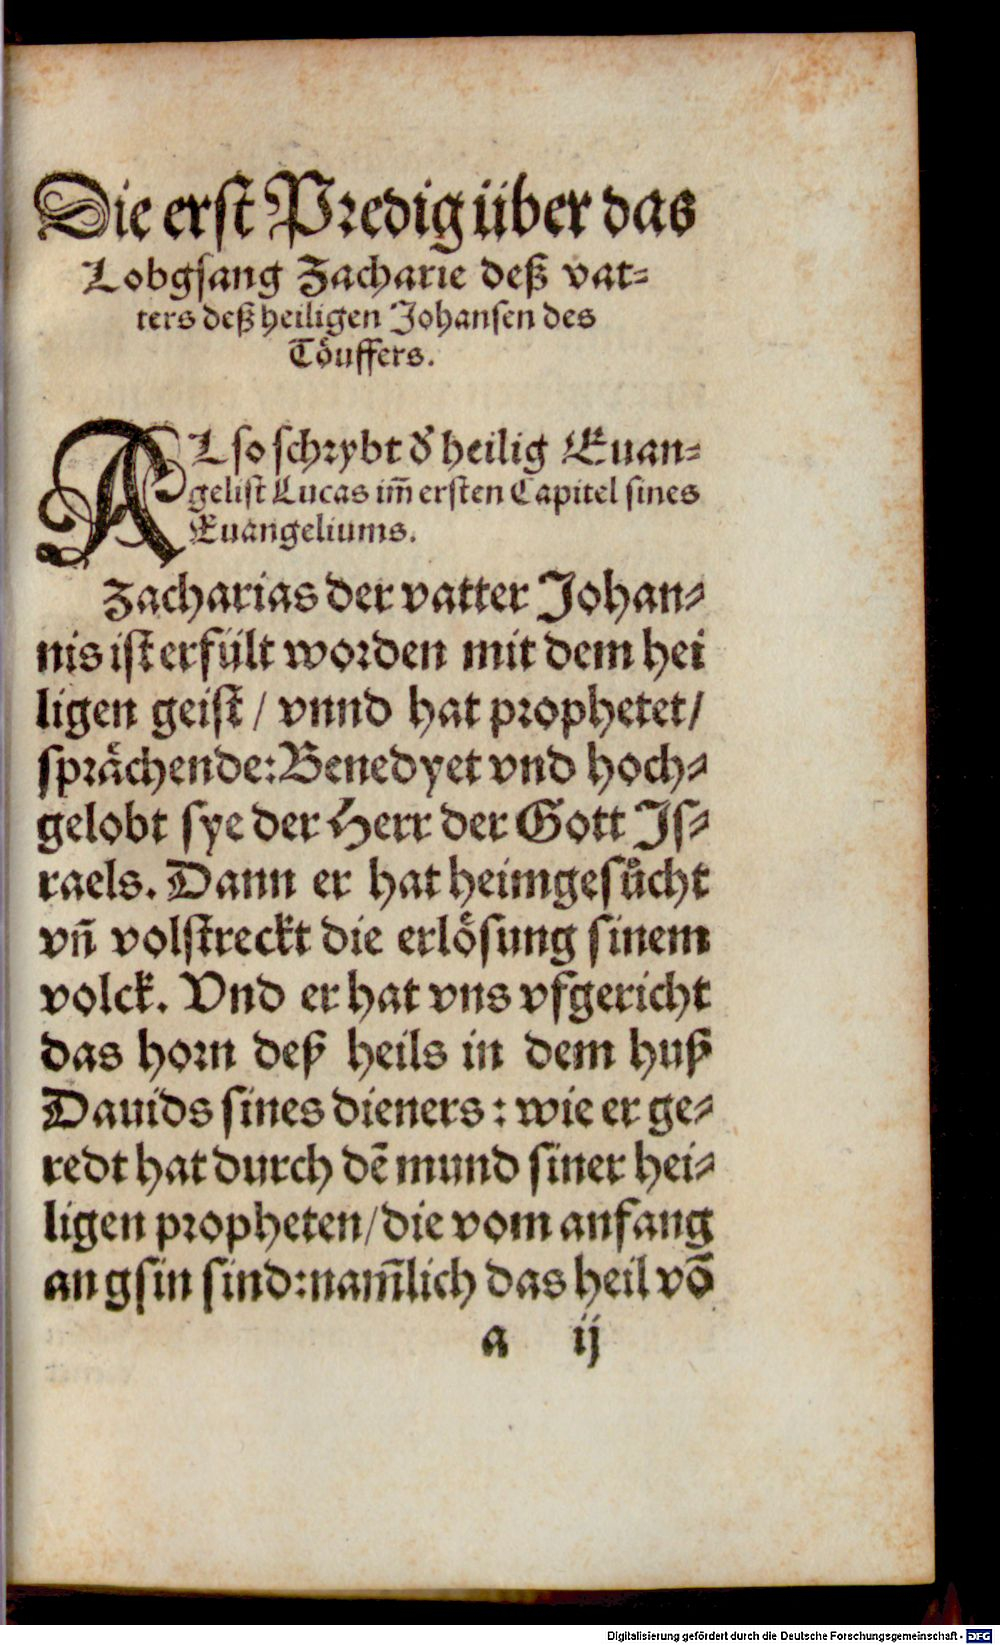 Die erſt Predig über das
Lobgſang Zacharie deß vat⸗
ters deß heiligen Johanſen des
Toͤuffers.
ALſo ſchrybt d' heilig Euan⸗
geliſt Lucas im̃ erſten Capitel ſines
Euangeliums.
Zacharias der vatter Johan⸗
nis iſt erfült worden mit dem hei
ligen geiſt / vnnd hat prophetet /
ſpraͤchende: Benedyet vnd hoch⸗
gelobt ſye der Herr der Gott Iſ⸗
raels. Dann er hat heimgeſuͦcht
vñ volſtreckt die erloͤſung ſinem
volck. Vnd er hat vns vfgericht
das horn deß heils in dem huß
Dauids ſines dieners : wie er ge⸗
redt hat durch dē mund ſiner hei⸗
ligen propheten / die vom anfang
an gſin ſind: nam̃lich das heil võ
a ij
Digitalisierung gefördert durch die Deutsche Forschungsgemeinschaft - DFG